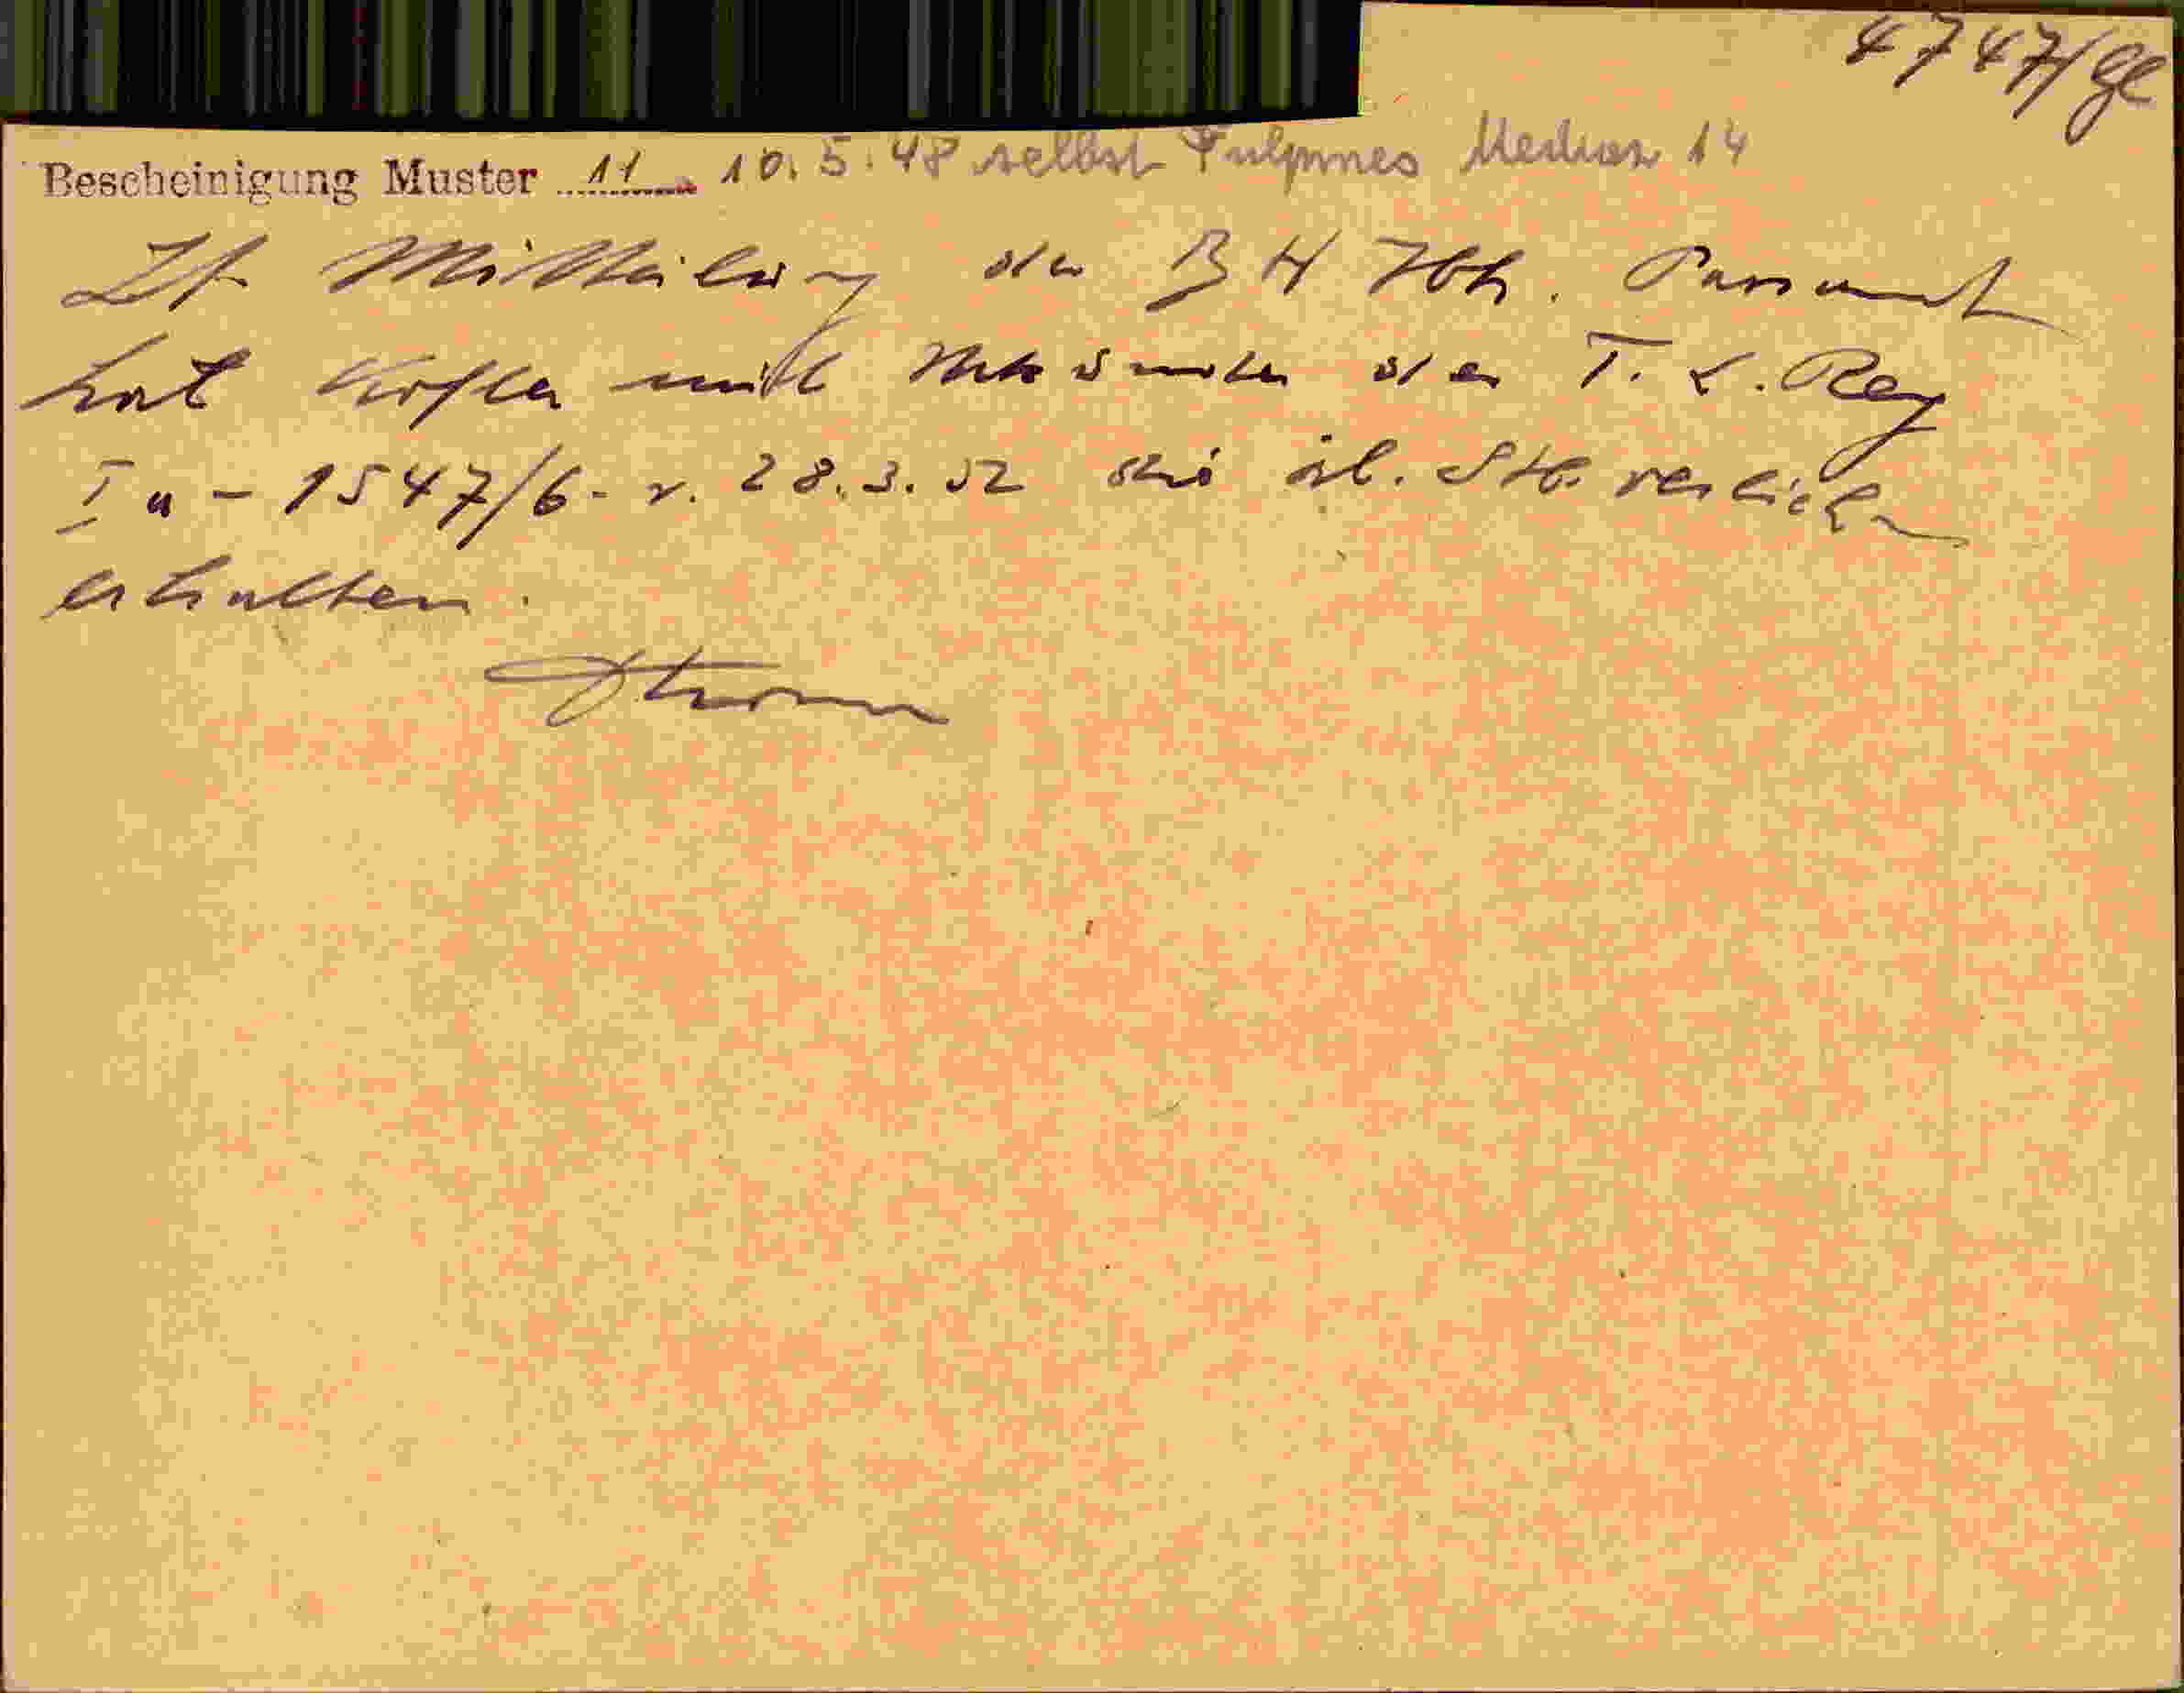 4747/Ge
Bescheinigung Muster 11 10.5.48 selbst Fulpmes Medraz 14
Lt. Mitteilung der BH Ibk. Passamt
hat Kofler mit Urkunde der T. L. Reg
Ia - 1547/6 - v. 28.3.52 die öst. Stb. verliehen
erhalten.